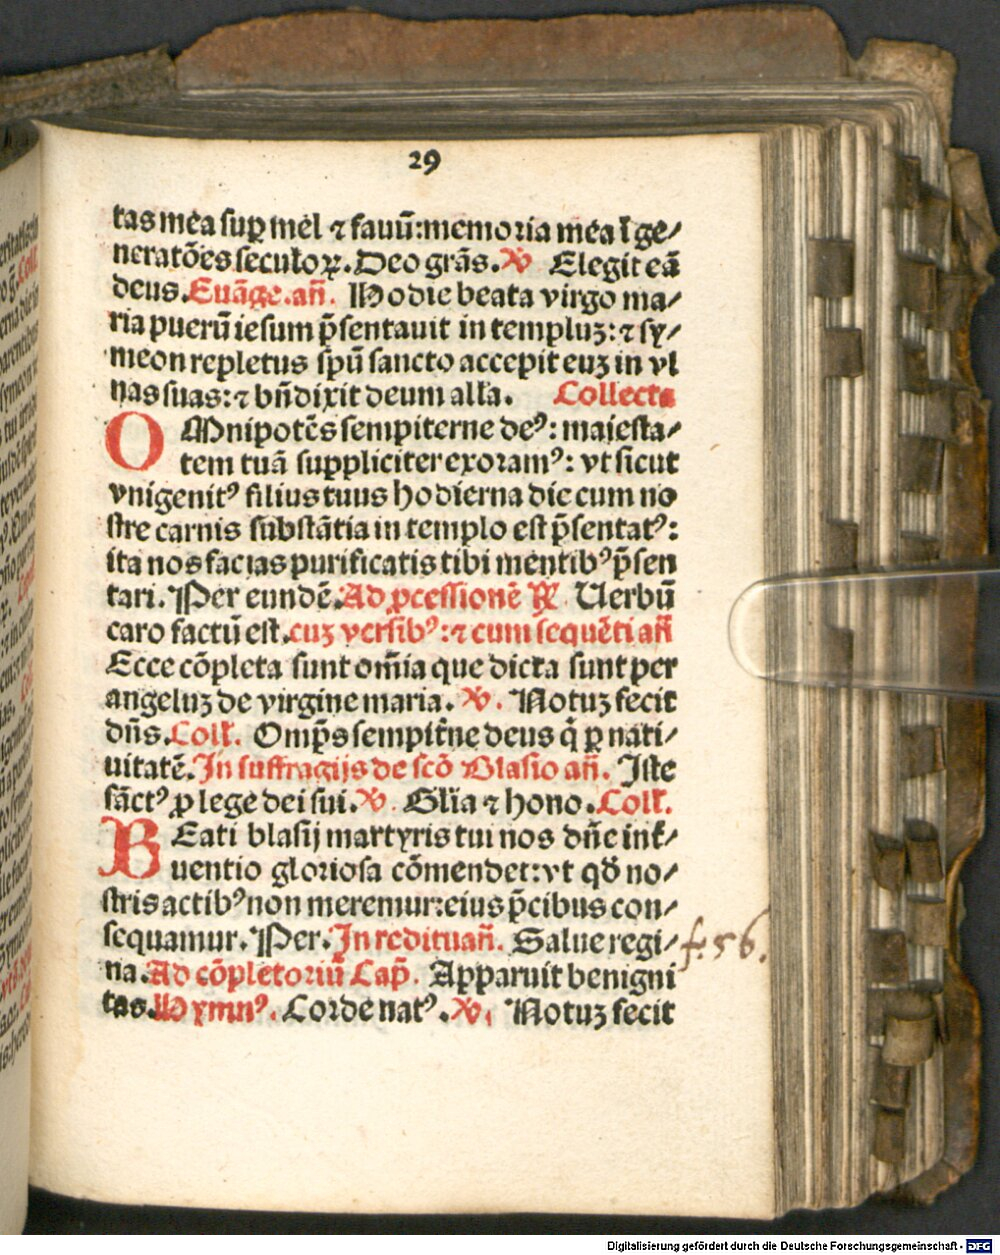 29
tas mea suꝑ mel ⁊ fauū: memoria mea ī ge/
neratōes seculoꝝ. Deo grãs. ℣ Elegit eã
deus. Euãge. añ. Hodie beata virgo ma/
ria puerū iesum p̄sentauit in templuʒ: ⁊ sy/
meon repletus spū sancto accepit euʒ in vl
nas suas: ⁊ bñdixit deum alła. Collecta
OMnipotēs sempiterne deꝰ: maiesta/
tem tuã suppliciter exoramꝰ: vt sicut
vnigenitꝰ filius tuus hodierna die cum no
stre carnis substãtia in templo est p̄sentatꝰ:
ita nos facias purificatis tibi mentibꝰ p̄sen
tari. Per eundē. Ad ꝓcessionē ℟ Uerbū
caro factū est. cuʒ versibꝰ: ⁊ cum sequēti añ
Ecce cōpleta sunt om̄ia que dicta sunt per
angeluʒ de virgine maria. ℣. Notuʒ fecit
dñs. Coll. Omp̄s sempit̄ne deus q̇ ꝑ nati/
uitatē. In suffragijs de scō Blasio añ. Iste
sãctꝰ ꝓ lege dei sui. ℣. Glīa ⁊ hono. Coll.
BEati blasij martyris tui nos dñe int̄/
uentio gloriosa cōmendet: vt qđ no/
stris actibꝰ non meremur: eius p̄cibus con/
sequamur. Per. In reditu añ. Salue regi/
f. 56.
na. Ad cōpletoriū Cap̄. Apparuit benigni
tas. Hymnꝰ. Corde natꝰ. ℣. Notuʒ fecit
Digitalisierung gefördert durch die Deutsche Forschungsgemeinschaft - DFG